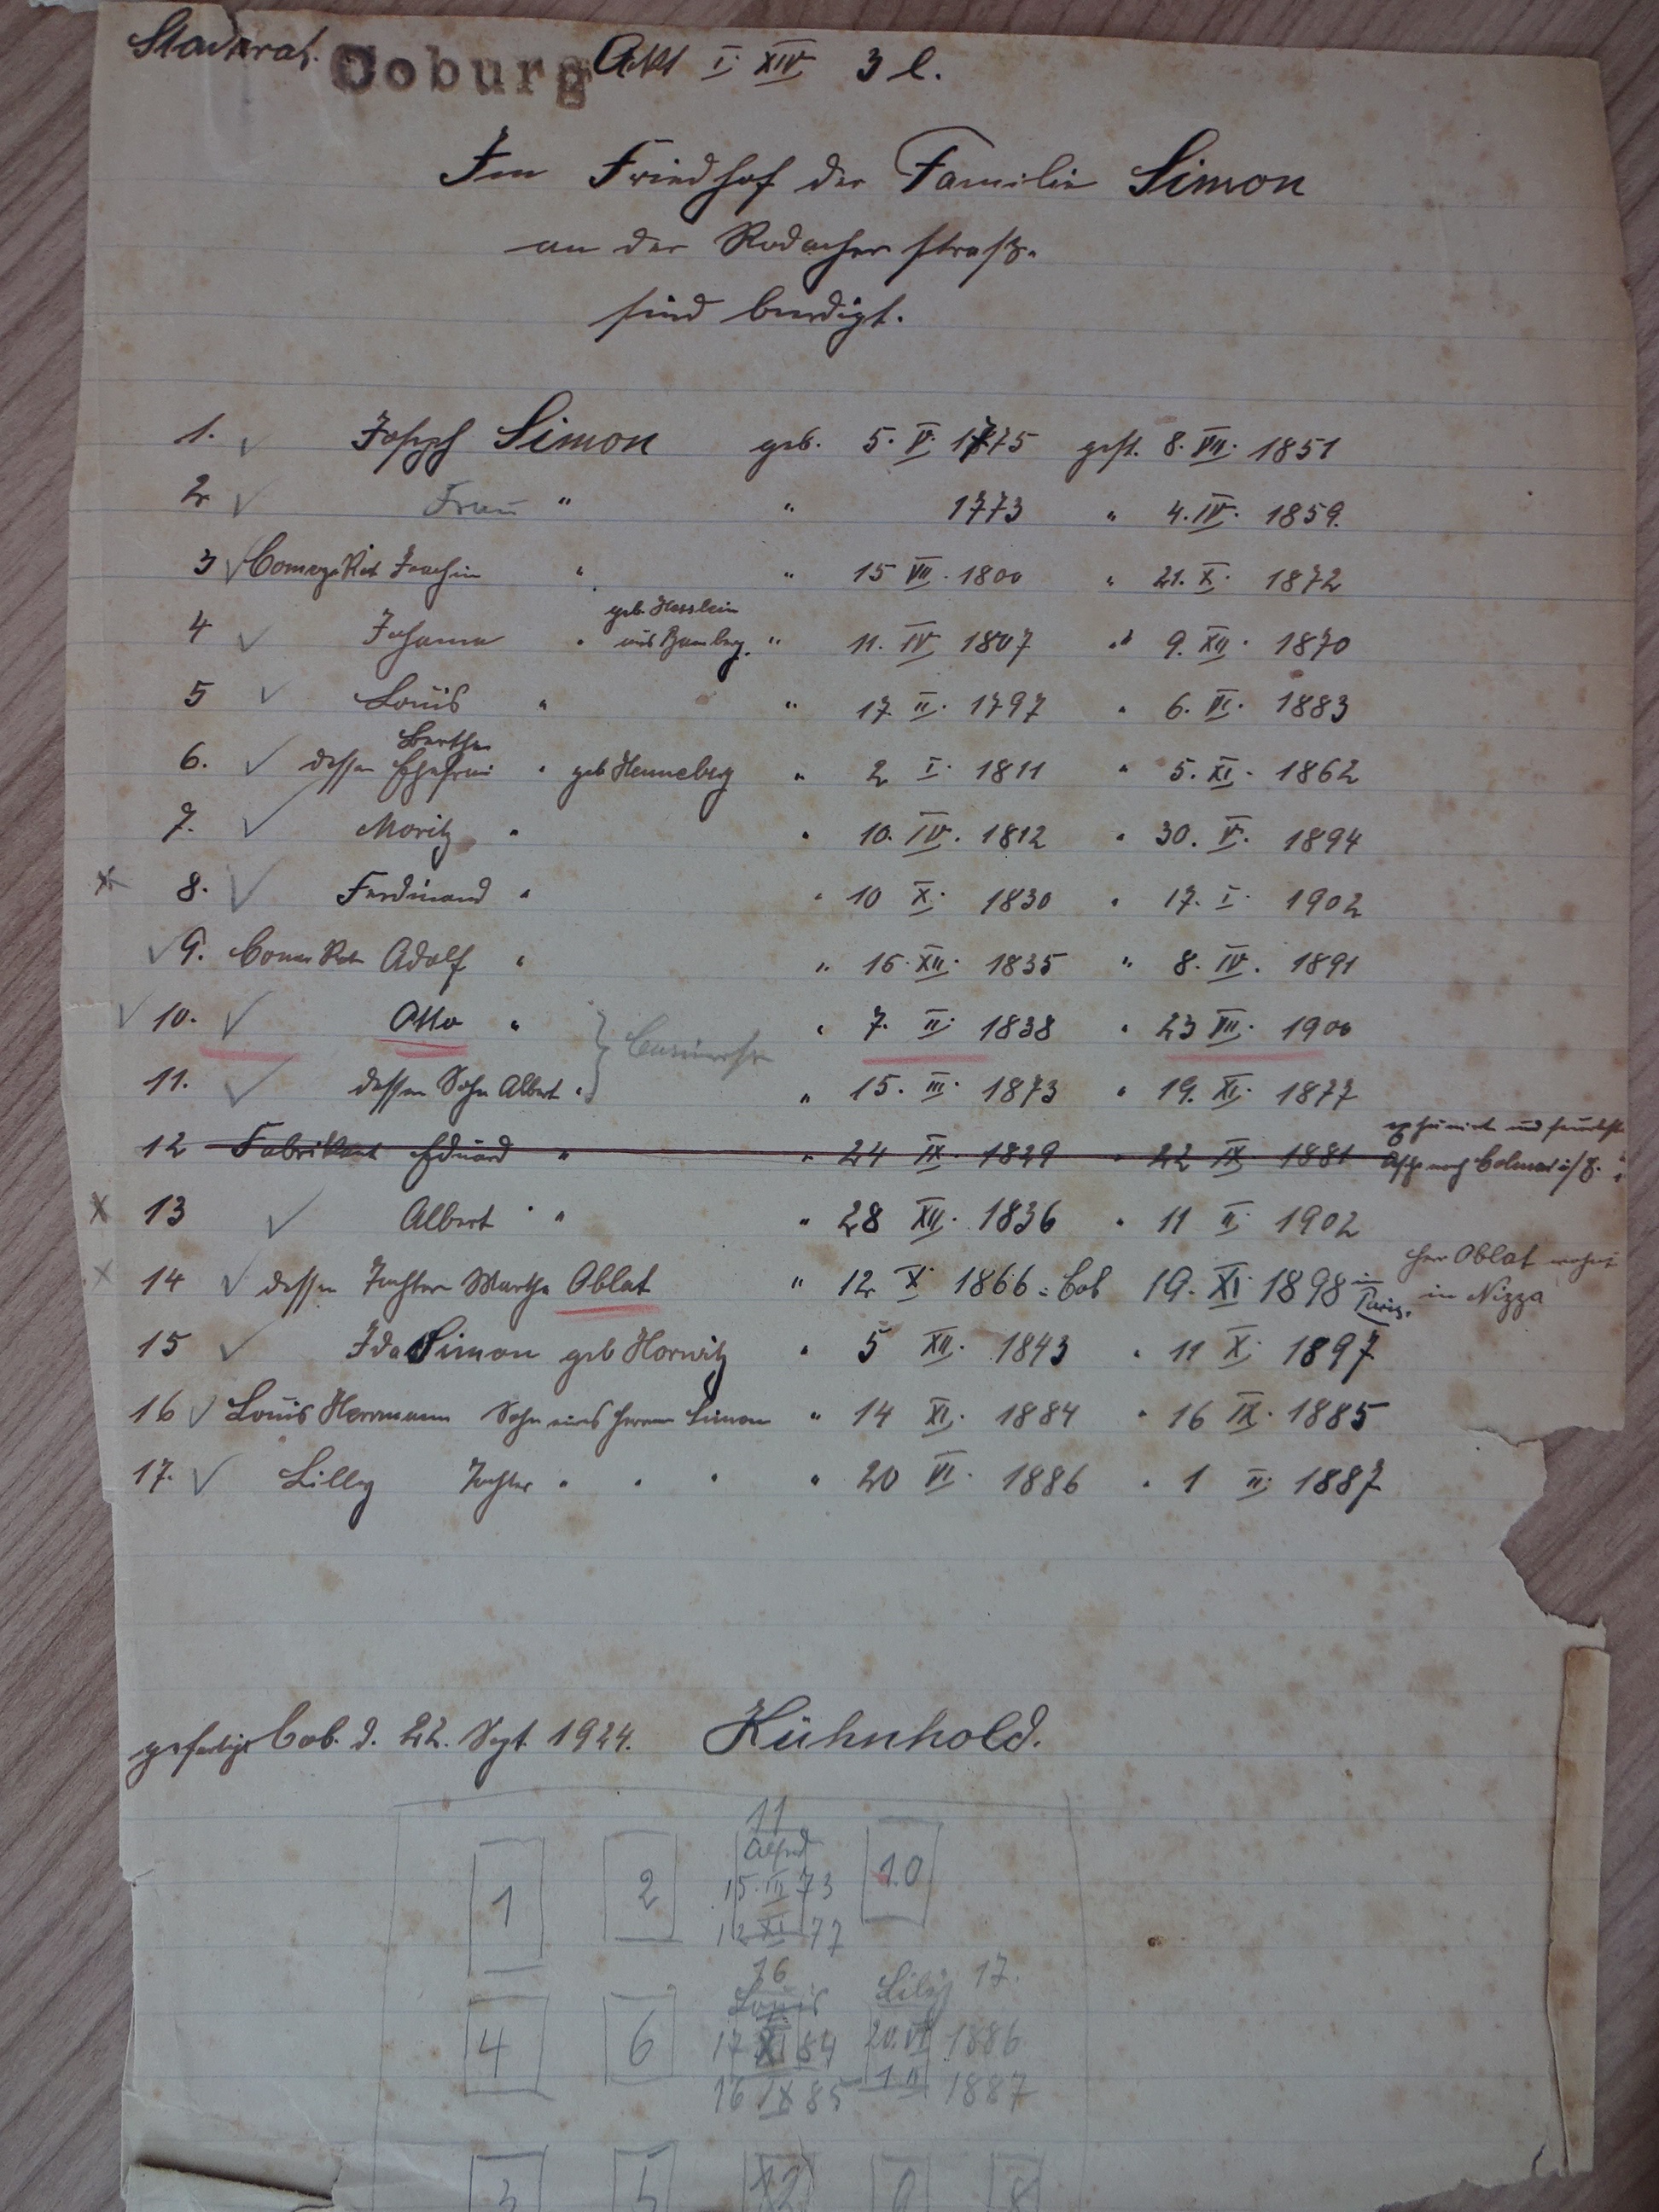 Stadtrat. Coburg Akt I. XIV 3 l.
Im Friedhof der Familie Simon
an der Rodacher Straße.
sind beerdigt.
1. ✓ Joseph Simon geb. 5. V. 1775 gest. 8. VII. 1851
2. ✓ Frau " " 1773 " 4. IV. 1859.
3 ✓ Joachim " " 15 VII. 1800 " 21. X. 1872
geb. Hesslein
4 ✓ Johanna " aus Bamberg. " 11. IV 1807 " 9. XII. 1870
5 ✓ Louis " " 17 II. 1797 " 6. VI. 1883
Bertha
6. ✓ dessen Ehefrau " geb Henneberg " 2 I. 1811 " 5. XI. 1862
7. ✓ Moritz " " 10. IV. 1812 " 30. V. 1894
x 8. ✓ Ferdinand " " 10 X. 1830 " 17. I. 1902
✓ 9. Adolf " " 16. XII. 1835 " 8. IV. 1891
✓ 10. ✓ Otto " " 7. II. 1838 " 23 VII. 1900
11. ✓ dessen Sohn Albert " " 15. III. 1873 " 19. XI. 1877
12 Fabrikant Eduard " " 24 IX. 1829 " 22 IX 1881 und
Asche nach Colmar i/E.
x 13 ✓ Albert " " 28 XII. 1836 " 11 II. 1902
x 14 ✓ dessen Tochter Martha Oblat " 12 X. 1866 = Cob 19. XI 1898 in Paris. Herr Oblat wohnt
in Nizza
15 ✓ Ida Simon geb Horwitz " 5 XII. 1843 " 11 X. 1897
16 ✓ Louis Herrmann Sohn eines Herrn Simon " 14 XI. 1884 " 16 IX. 1885
17. ✓ Lilly Tochter " " " " 20 VI. 1886 " 1 II. 1887
gefertigt Cob. d. 22. Sept. 1924. Kühnhold.
11
Alfred
1 2 15. III 73 10
12 XI 77
16 Lily 17.
Louis
4 6 17 XI 84 20. VI 1886
16 IX 85 1 II 1887
3 5 12 9 8